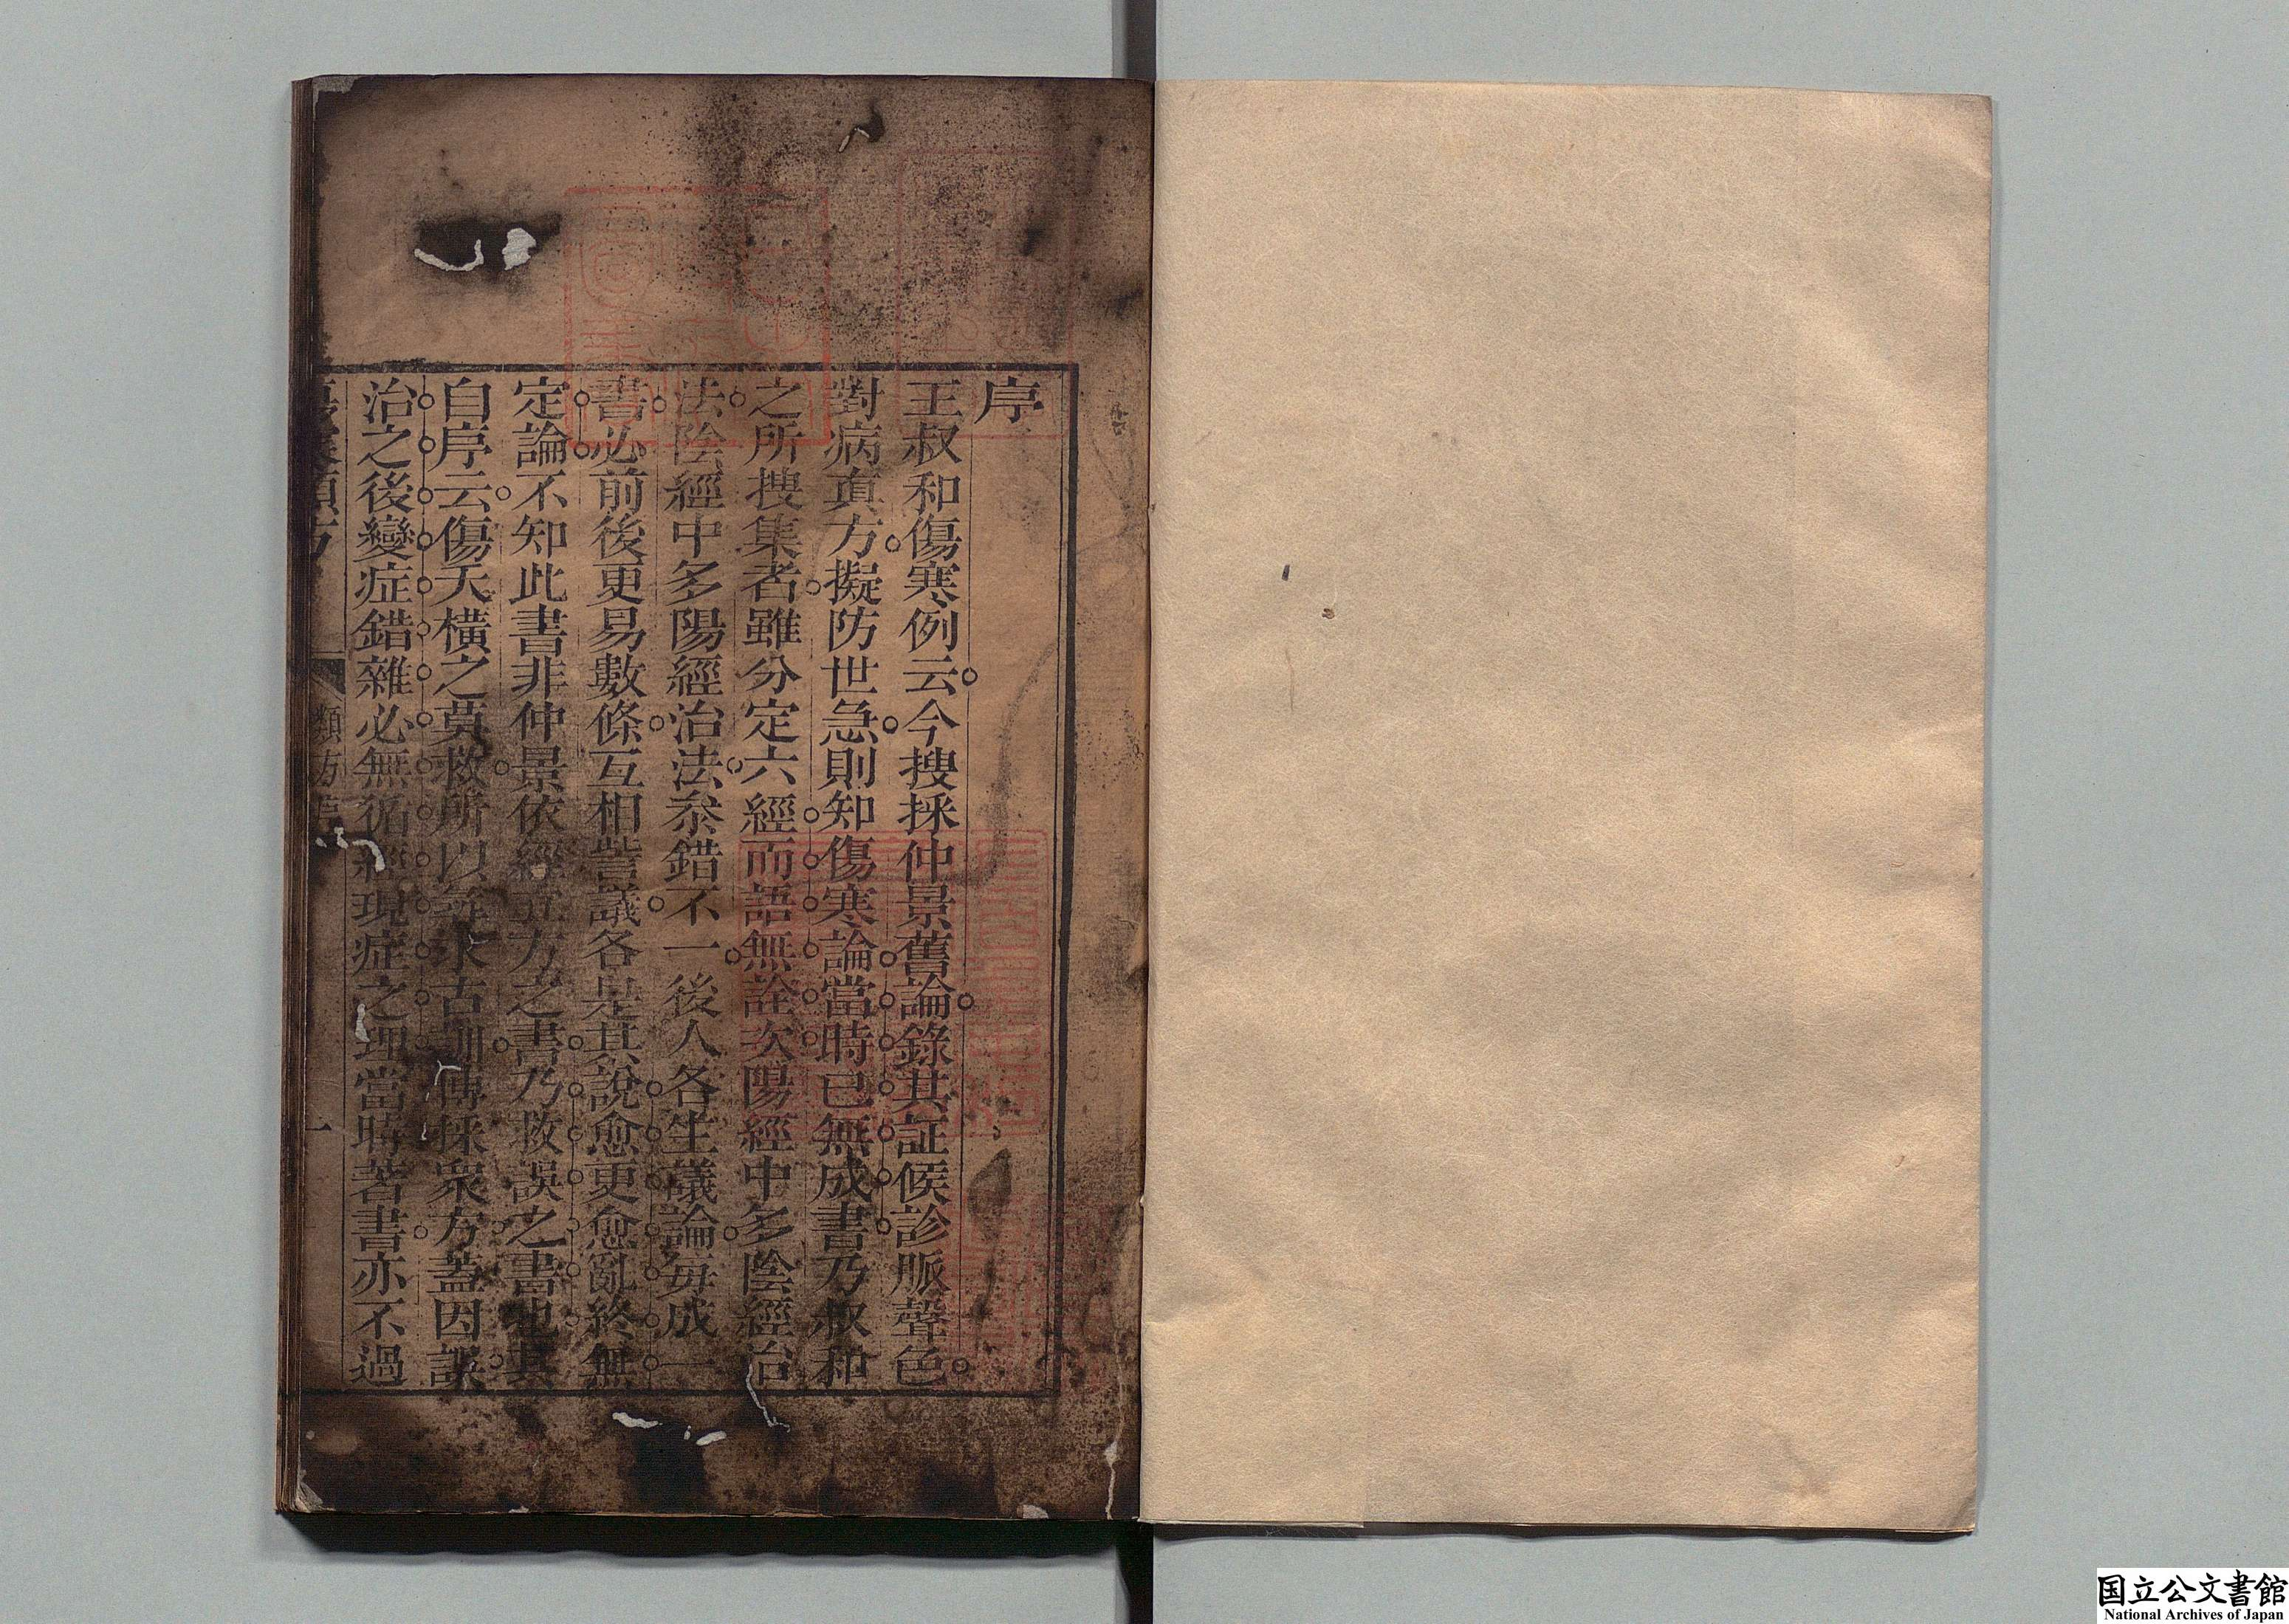 序
王叔和傷寒例云今搜採仲景舊論錄其証候診脈聲色
對病眞方擬防世急則知傷寒論當時已無成書乃叔和
之所搜集者雖分定六經而語無詮次陽經中多陰經治
法陰經中多陽經治法叅錯不一後人各生議論每成一
書必前後更易數條互相訾議各是其說愈更愈亂終無
定論不知此書非仲景依經立方之書乃救誤之書也其
自序云傷夭橫之莫救所以求古訓博採衆方蓋因誤
治之後變症錯雜必無循經現症之理當時著書亦不過
類方
一
国立公文書館
National Archives of Japan